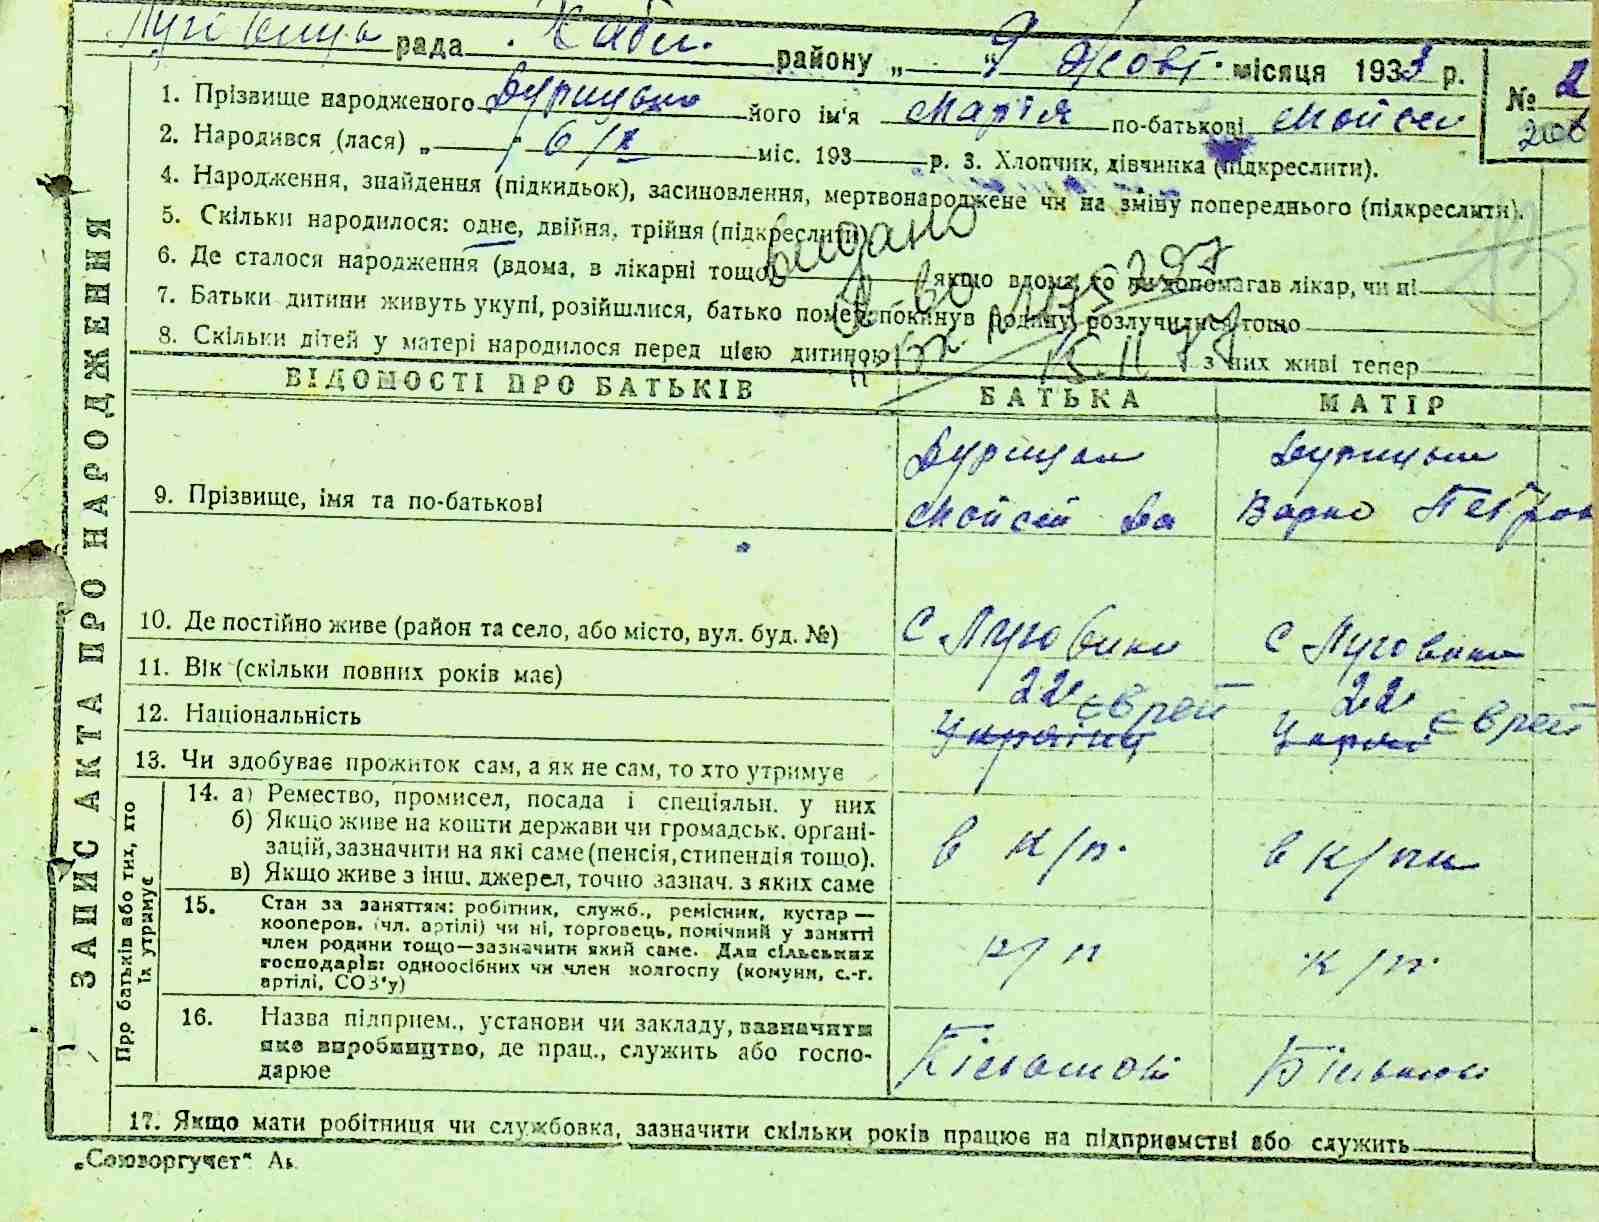 рада Кабл. району „ “ 9 Жовт. місяця 1933 р.
№ 2
1. Прізвище народженого його ім'я Марія по-батькові Мойсеи
2. Народився (лася) „ 6/X міс. 193 р. 3. Хлопчик, дівчинка (підкреслити).
4. Народження, знайдення (підкидьок), засиновлення, мертвонароджене чи на зміну попереднього (підкреслити).
5. Скільки народилося: одне, двійня, трійня (підкреслити)
6. Де сталося народження (вдома, в лікарні тощо) якщо вдома, то чи допомагав лікар, чи ні
видано
7. Батьки дитини живуть укупі, розійшлися, батько помер, покинув родину, розлучилися тощо
8. Скільки дітей у матері народилося перед цією дитиною з них живі тепер
ВІДОМОСТІ ПРО БАТЬКІВ БАТЬКА МАТІР
9. Прізвище, імя та по-батькові
Мойсей Варка Петров
10. Де постійно живе (район та село, або місто, вул. буд. №) с Луговики с Луговики
11. Вік (скільки повних років має) 22 22
12. Національність українц єврей єврей
13. Чи здобуває прожиток сам, а як не сам, то хто утримує
14. а) Ремество, промисел, посада і спеціяльн. у них
б) Якщо живе на кошти держави чи громадськ. організацій, зазначити на які саме (пенсія, стипендія тощо).
в) Якщо живе з інш. джерел, точно зазнач. з яких саме
в к/г. в к/ги
15. Стан за заняттям: робітник, служб., ремісник, кустар —
кооперов. (чл. артілі) чи ні, торговець, помічний у занятті
член родини тощо—зазначити який саме. Для сільських
господарів: одноосібних чи член колгоспу (комуни, с.-г.
артілі, СОЗ'у)
к/г к/г.
16. Назва підприєм., установи чи закладу, зазначити
яке виробництво, де прац., служить або госпо-
дарює
17. Якщо мати робітниця чи службовка, зазначити скільки років працює на підприємстві або служить
„Союзоргучет“
ЗАПИС АКТА ПРО НАРОДЖЕННЯ
Про батьків або тих, хто
їх утримує